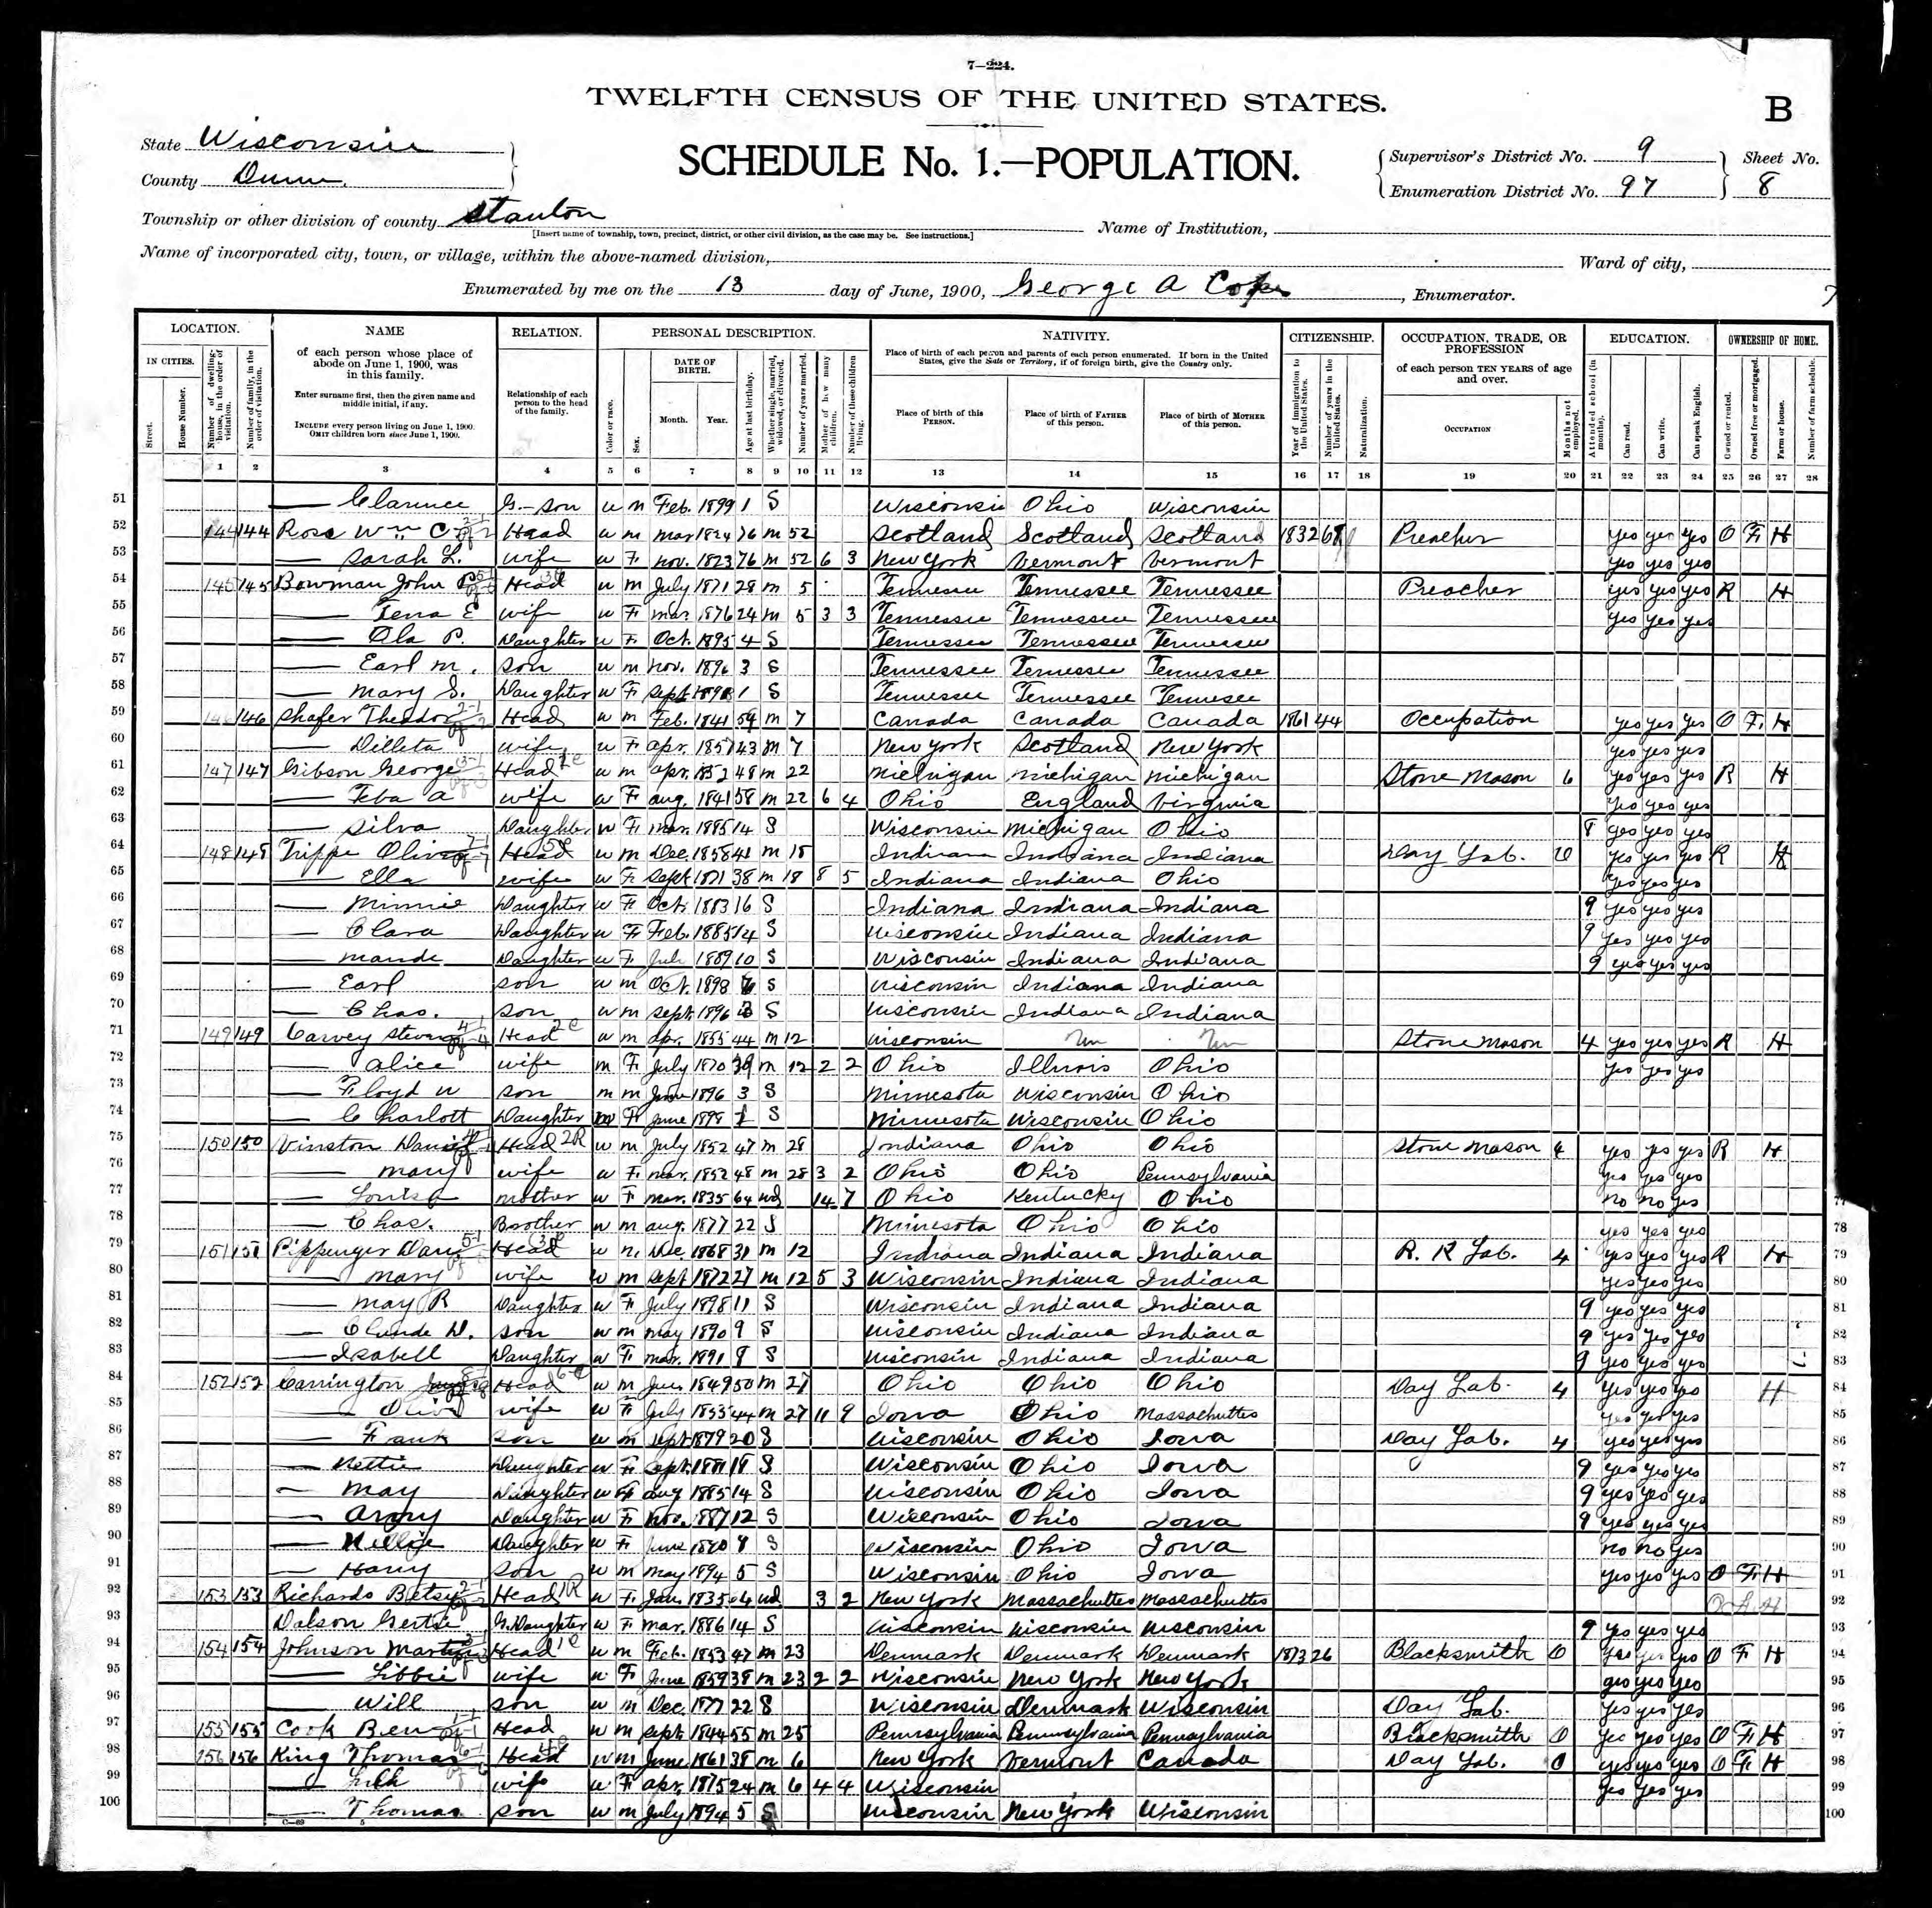 7—224.
TWELFTH CENSUS OF THE UNITED STATES.
B
State Wisconsin
County Dunn.
SCHEDULE No. 1.—POPULATION.
Supervisor's District No. 9
Enumeration District No. 97
Sheet No. 8
Township or other division of county Stanton
[Insert name of township, town, precinct, district, or other civil division, as the case may be. See instructions.]
Name of Institution,
Name of incorporated city, town, or village, within the above-named division,
Ward of city,
Enumerated by me on the 13 day of June, 1900, George A , Enumerator.
LOCATION. NAME RELATION. PERSONAL DESCRIPTION. NATIVITY. CITIZENSHIP. OCCUPATION, TRADE, OR PROFESSION EDUCATION. OWNERSHIP OF HOME.
IN CITIES. Street. House Number. Number of dwelling-house, in the order of visitation. Number of family, in the order of visitation.
of each person whose place of abode on June 1, 1900, was in this family.
Enter surname first, then the given name and middle initial, if any.
INCLUDE every person living on June 1, 1900. OMIT children born since June 1, 1900.
Relationship of each person to the head of the family.
Color or race. Sex. DATE OF BIRTH. Month. Year. Age at last birthday. Whether single, married, widowed, or divorced. Number of years married. Mother of how many children. Number of these children living.
Place of birth of each person and parents of each person enumerated. If born in the United States, give the State or Territory; if of foreign birth, give the Country only.
Place of birth of this PERSON. Place of birth of FATHER of this person. Place of birth of MOTHER of this person.
Year of immigration to the United States. Number of years in the United States. Naturalization.
of each person TEN YEARS of age and over.
OCCUPATION Months not employed.
Attended school (in months). Can read. Can write. Can speak English.
Owned or rented. Owned free or mortgaged. Farm or house. Number of farm schedule.
1 2 3 4 5 6 7 8 9 10 11 12 13 14 15 16 17 18 19 20 21 22 23 24 25 26 27 28
51 — Clarence G-son w m Feb. 1899 1 S Wisconsin Ohio Wisconsin
52 144 144 Rose Wm C Head w m mar 1824 76 m 52 Scotland Scotland Scotland 1832 Preacher yes yes yes O F H
53 — Sarah L. wife w F nov. 1823 76 m 52 6 3 New York Vermont Vermont yes yes yes
54 145 145 Bowman John Head w m July 1871 28 m 5 Tennessee Tennessee Tennessee Preacher yes yes yes R H
55 — Tena E wife w F mar. 1876 24 m 5 3 3 Tennessee Tennessee Tennessee yes yes yes
56 — Ola P. Daughter w F Oct. 1895 4 S Tennessee Tennessee Tennessee
57 — Earl m. son w m nov. 1896 3 S Tennessee Tennessee Tennessee
58 — mary S. Daughter w F Sept 1898 1 S Tennessee Tennessee Tennessee
59 146 146 Shafer Theodor Head w m Feb. 1841 59 m 7 Canada Canada Canada 1861 44 Occupation yes yes yes O F H
60 — Dilleta wife w F apr. 1857 43 m 7 New York Scotland New York yes yes yes
61 147 147 Gibson George Head w m apr. 1852 48 m 22 Michigan Michigan Michigan Stone Mason 6 yes yes yes R H
62 — a wife w F aug. 1841 58 m 22 6 4 Ohio England Virginia yes yes yes
63 — Silva Daughter w F mar. 1885 14 S Wisconsin Michigan Ohio 8 yes yes yes
64 148 148 Trippe Oliver Head w m Dec. 1858 41 m 18 Indiana Indiana Indiana Day Lab. 0 yes yes yes R H
65 — Ella wife w F Sept 38 m 18 8 5 Indiana Indiana Ohio yes yes yes
66 — Minnie Daughter w F Oct. 1883 16 S Indiana Indiana Indiana 9 yes yes yes
67 — Clara Daughter w F Feb. 1885 14 S Wisconsin Indiana Indiana 9 yes yes yes
68 — maude Daughter w F July 1889 10 S Wisconsin Indiana Indiana 9 yes yes yes
69 — Earl son w m Oct. 1898 S Wisconsin Indiana Indiana
70 — Chas. son w m Sept. 1896 3 S Wisconsin Indiana Indiana
71 149 149 Carvey Head w m apr. 1855 44 m 12 Wisconsin Un Un Stone Mason 4 yes yes yes R H
72 — alice wife m F July 1870 m 12 2 2 Ohio Illinois Ohio yes yes yes
73 — Floyd W son m m June 1896 3 S Minnesota Wisconsin Ohio
74 — Charlott Daughter F June 1898 1 S Minnesota Wisconsin Ohio
75 150 150 Vinston David Head w m July 1852 47 m 28 Indiana Ohio Ohio Stone Mason 4 yes yes yes R H
76 — mary wife w F mar. 1852 48 m 28 3 2 Ohio Ohio Pennsylvania yes yes yes
77 — Louisa mother w F mar. 1835 64 wd 14 7 Ohio Kentucky Ohio no no yes
78 — Chas. Brother w m aug. 1877 22 S Minnesota Ohio Ohio yes yes yes
79 151 151 Pippenger Head w m Dec. 1868 31 m 12 Indiana Indiana Indiana R. R Lab. 4 yes yes yes R H
80 — mary wife w m Sept 1872 27 m 12 5 3 Wisconsin Indiana Indiana yes yes yes
81 — may R Daughter w F July 1898 11 S Wisconsin Indiana Indiana 9 yes yes yes
82 — Claude D. son w m may 1890 9 S Wisconsin Indiana Indiana 9 yes yes yes
83 — Isabell Daughter w F mar. 1891 8 S Wisconsin Indiana Indiana 9 yes yes yes
84 152 152 Carrington Head w m 1849 50 m 27 Ohio Ohio Ohio Day Lab. 4 yes yes yes H
85 — wife w F July 1855 44 m 27 11 9 Iowa Ohio Massachuttes yes yes yes
86 — Frank son w m Sept 1879 20 S Wisconsin Ohio Iowa Day Lab. 4 yes yes yes
87 — Nettie Daughter w F Sept. 1881 18 S Wisconsin Ohio Iowa 9 yes yes yes
88 — May Daughter w F aug 1885 14 S Wisconsin Ohio Iowa 9 yes yes yes
89 — Daughter w F Nov. 1887 12 S Wisconsin Ohio Iowa 9 yes yes yes
90 — Nellie Daughter w F June S Wisconsin Ohio Iowa no no yes
91 — Harry son w m may 1894 5 S Wisconsin Ohio Iowa yes yes yes O F H
92 153 153 Richards Betsy Head w F Jan. 1835 64 wd 3 2 New York Massachuttes Massachuttes
93 Dalson Gertie G. Daughter w F mar. 1886 14 S Wisconsin Wisconsin Wisconsin 9 yes yes yes
94 154 154 Johnson Martin Head w m Feb. 1853 47 m 23 Denmark Denmark Denmark 1873 26 Blacksmith 0 yes yes yes O F H
95 — Libbie wife w F June 1859 38 m 23 2 2 Wisconsin New York New York yes yes yes
96 — Will son w m Dec. 1877 22 S Wisconsin Denmark Wisconsin Day Lab. yes yes yes
97 155 155 Cook Ben Head w m Sept 1844 55 m 25 Pennsylvania Pennsylvania Pennsylvania Blacksmith 0 yes yes yes O F H
98 156 156 King Thomas Head w m June 1861 38 m 6 New York Vermont Canada Day Lab. 0 yes yes yes O F H
99 — wife w F apr. 1875 24 m 6 4 4 Wisconsin yes yes yes
100 — Thomas son w m July 1894 5 S Wisconsin New York Wisconsin